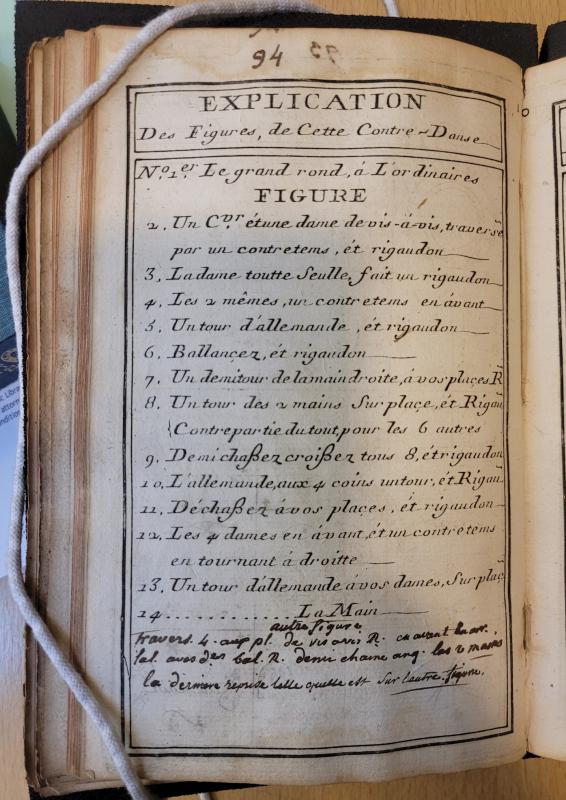 94
EXPLICATION
Des Figures, de Cette Contre-Danse
N.o 1.er Le grand rond, á L'ordinaires
FIGURE
2, Un C.vr étune dame devis-á-vis, traverse
par un contretems, ét rigaudon
3, La dame toutte Seulle, fait un rigaudon
4, Les 2 mêmes, un contretems en ávant
5, Un tour d'allemande, ét rigaudon
6, Ballançez, ét rigaudon
7, Un demi tour de la main droite, á vos plaçes R
8, Un tour des 2 mains Sur plaçe, ét Rigau
Contrepartie du tout, pour les 6 autres
9, Demi chaßez croißez tous 8, ét rigaudon
10, L'allemande, aux 4 coins un tour, ét Rigau
11, Déchaßez á vos plaçes, ét rigaudon
12, Les 4 dames en ávant, ét un contretems
en tournant á droitte
13, Un tour d'allemande á vos dames, Sur plaç
14 . . . . . . . . . . . . . La Main
autre figure
travers. 4 aux pl. de vis avis R. en avant
bal. R. demi chaine ang. les 2 mains
la derniere reprise telle quelle est sur l'autre figure.